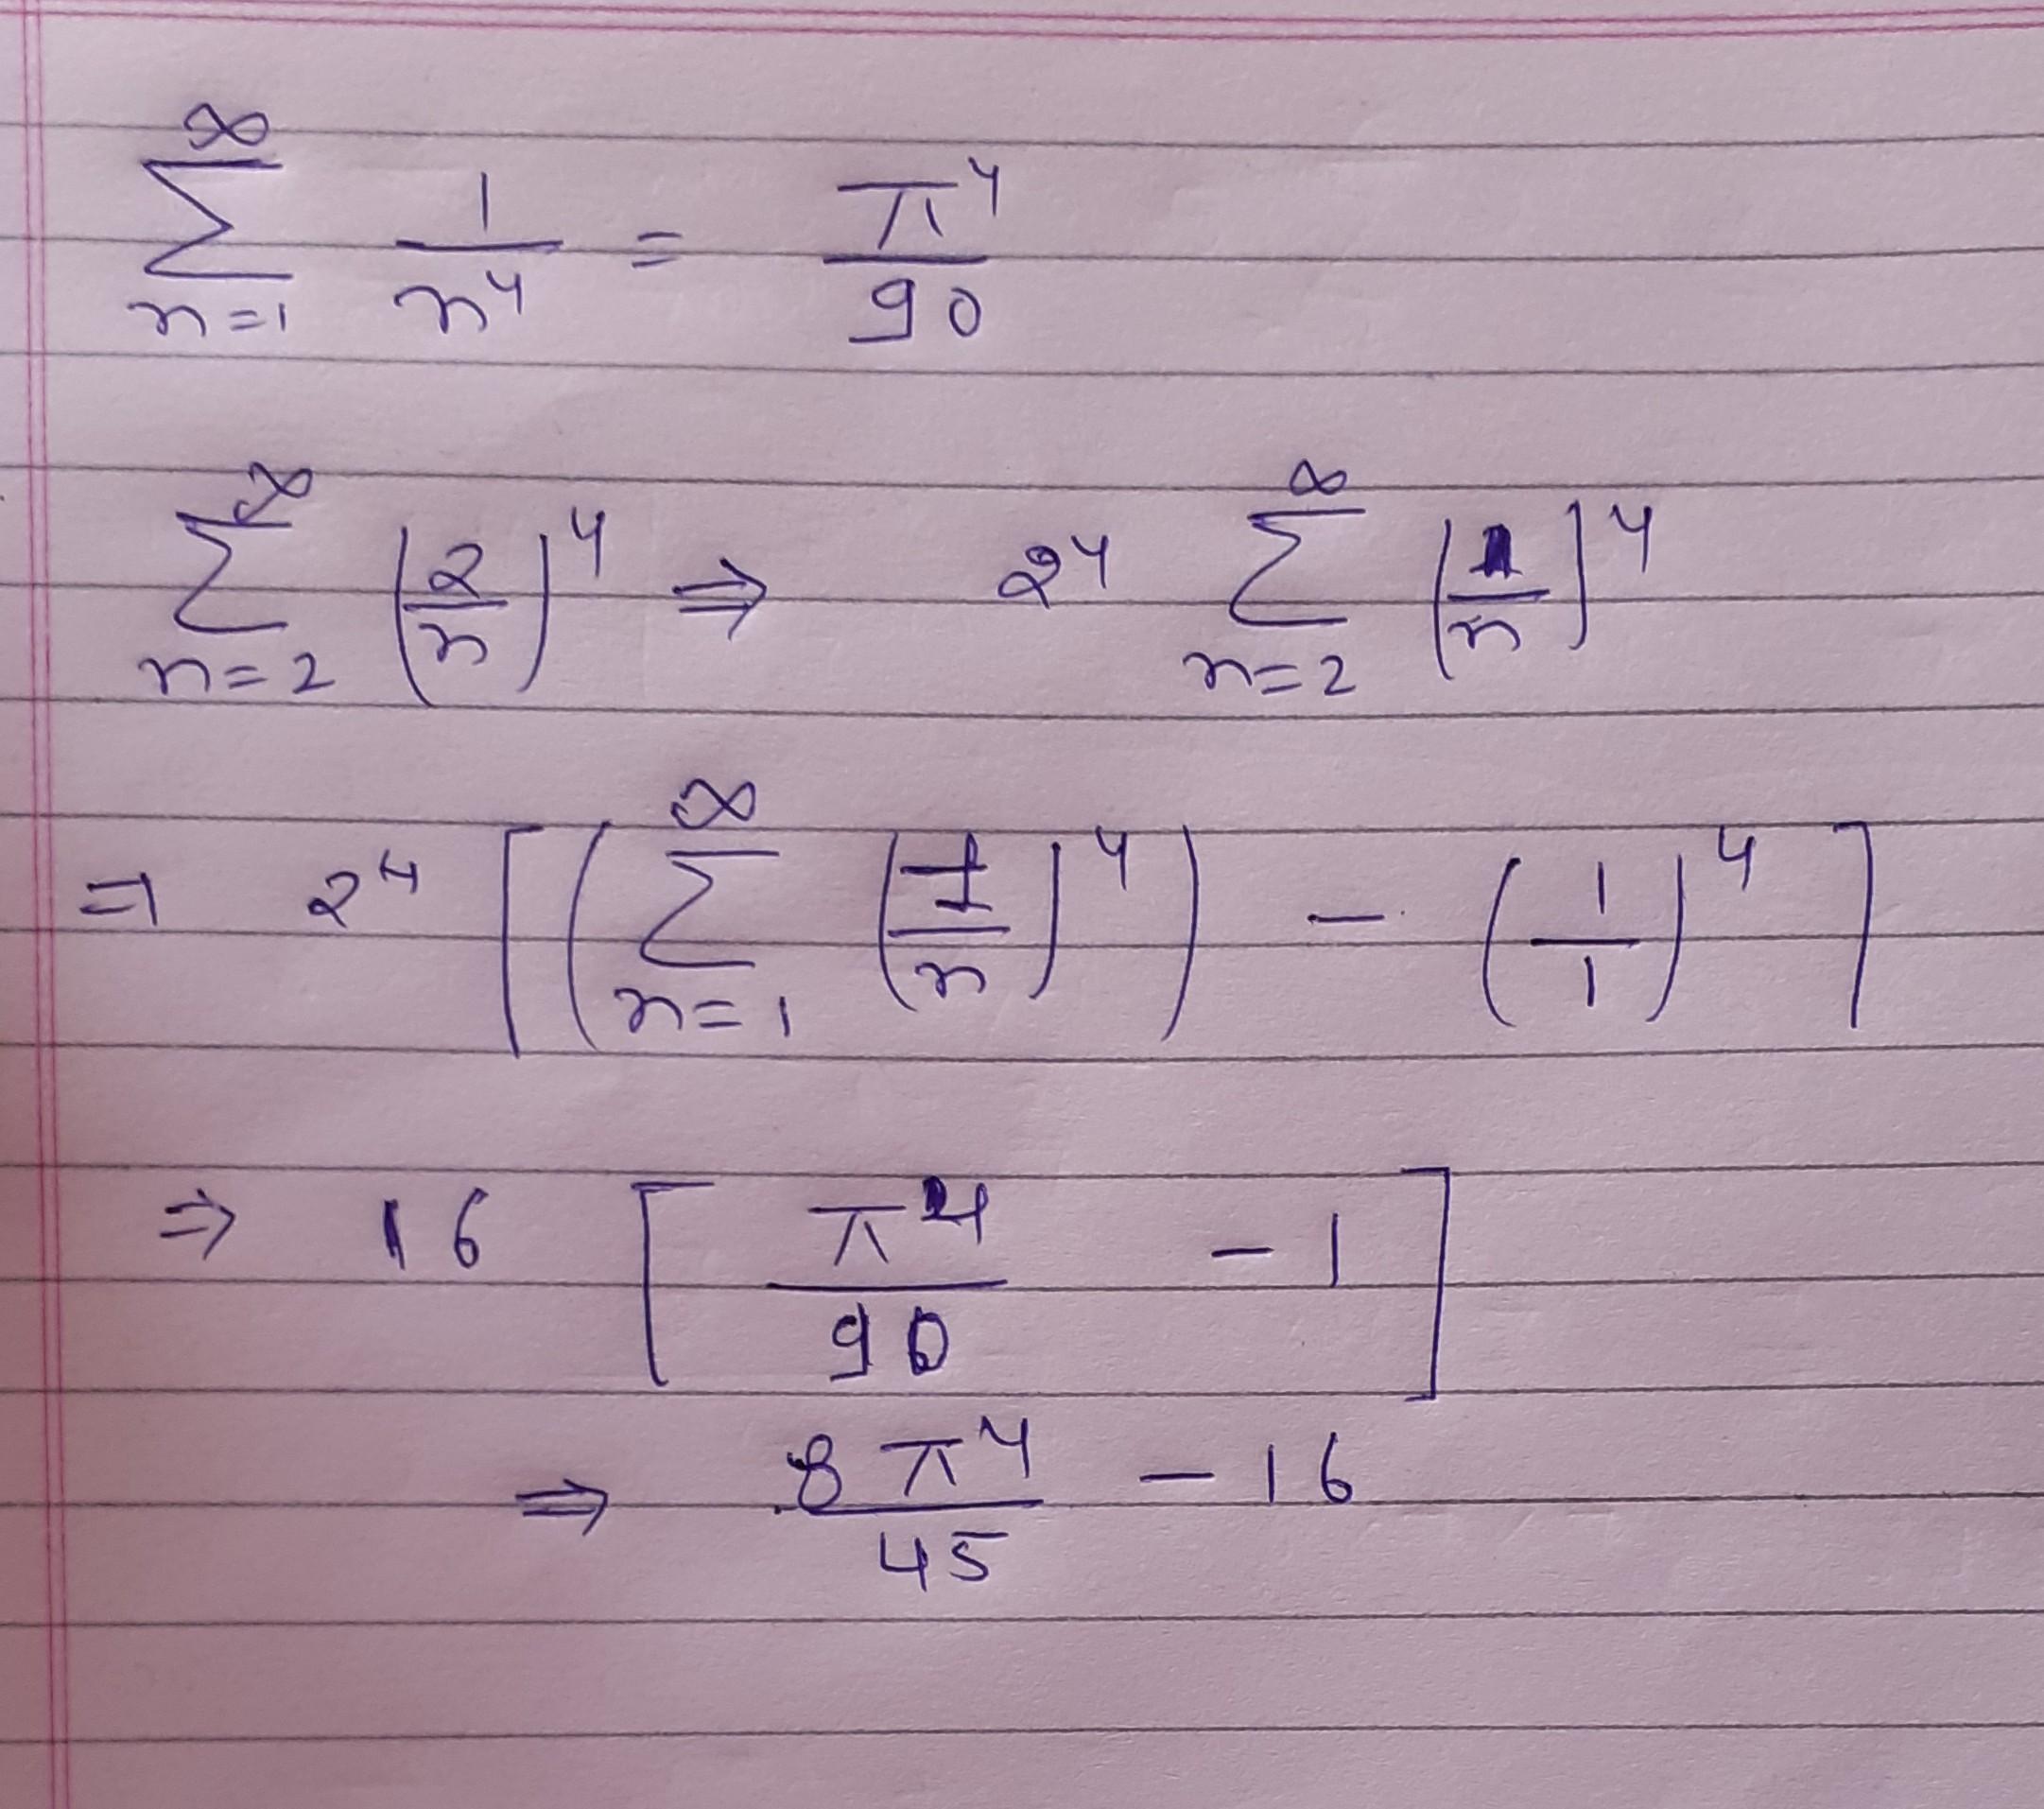 $\sum_{n=1}^{\infty} \frac{1}{n^4} = \frac{\pi^4}{90}$
$\sum_{n=2}^{\infty} \left(\frac{2}{n}\right)^4 \Rightarrow 2^4 \sum_{n=2}^{\infty} \left(\frac{1}{n}\right)^4$
$\Rightarrow 2^4 \left[ \left( \sum_{n=1}^{\infty} \left(\frac{1}{n}\right)^4 \right) - \left(\frac{1}{1}\right)^4 \right]$
$\Rightarrow 16 \left[ \frac{\pi^4}{90} - 1 \right]$
$\Rightarrow \frac{8\pi^4}{45} - 16$